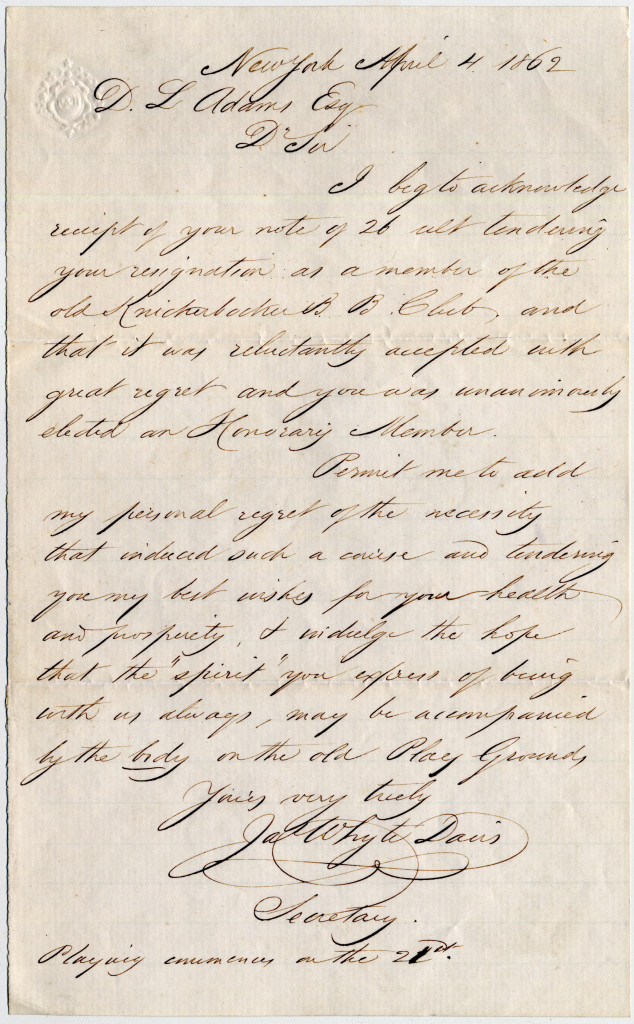 New York April 4. 1862
D. L Adams Esq
Dr Sir
I beg to acknowledge
receipt of your note of 26 ult tendering
your resignation as a member of the
old Knickerbocker B. B. Club, and
that it was reluctantly accepted with
great regret and you was unanimously
elected an Honorary Member.
Permit me to add
my personal regret of the necessity
that induced such a course and tendering
you my best wishes for your health
and prosperity, I indulge the hope
that the "spirit" you express of being
with us always, may be accompanied
by the body on the old Play Grounds
Yours very truly
Jas Whyte Davis
Secretary.
Playing commences on the 21st.